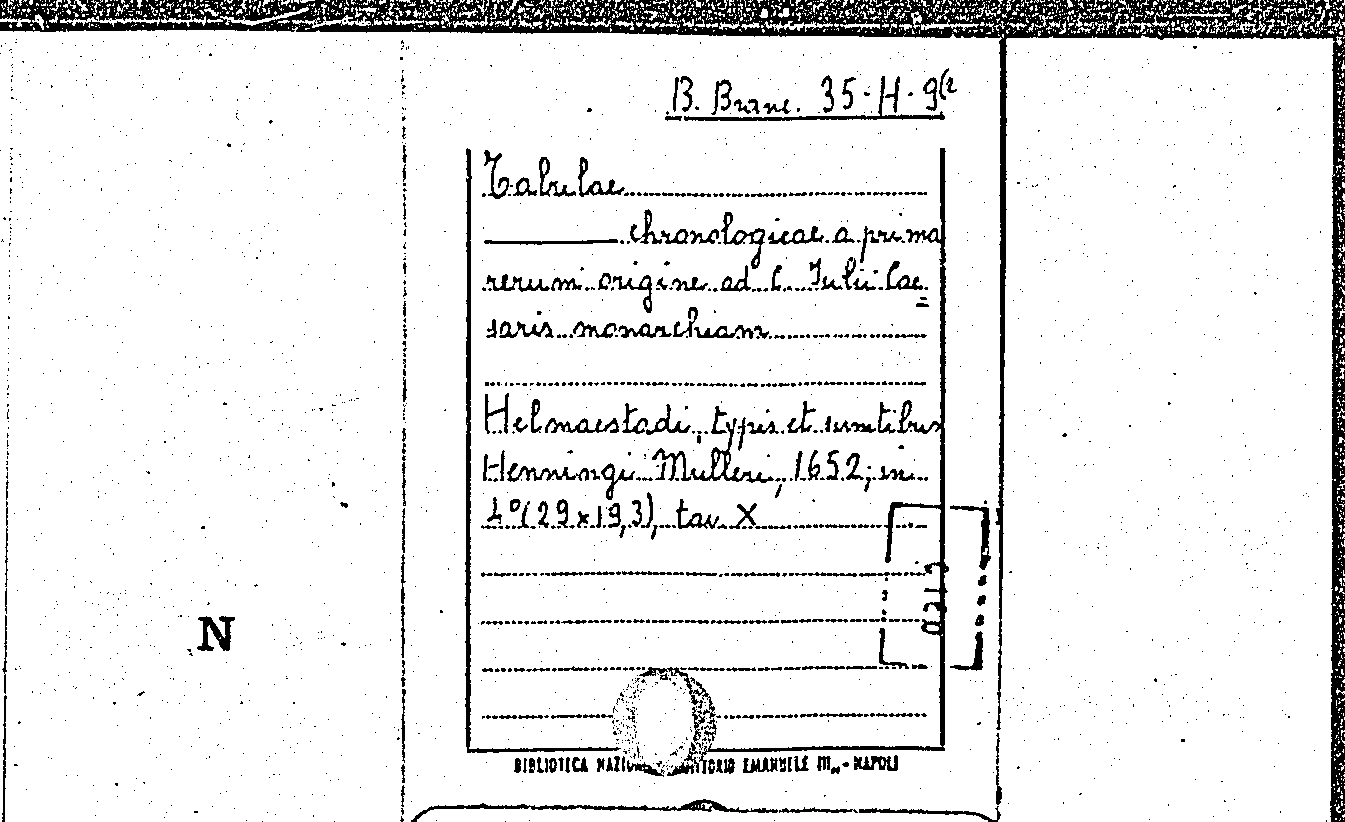 B. Branc. 35·H·9(2
Tabulae
chronologicae a prima
rerum origine ad C. Iulii Cae=
saris monarchiam
Helmaestadi, typis et sumtibus
Henningi Mulleri, 1652; in
4º(29x19,3), tav. X
N
BIBLIOTECA EMANUELE III - NAPOLI